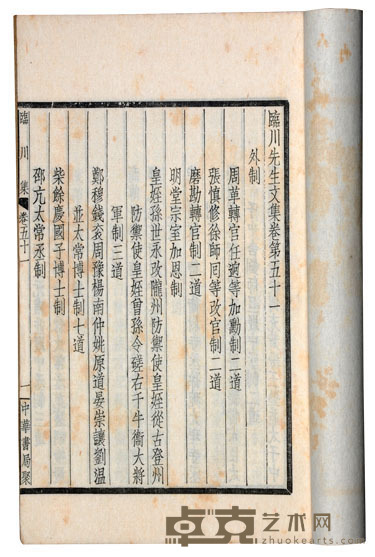 臨川先生文集卷第五十一
外制
周革轉官任遹等加勳制二道
張慎修徐師囘等改官制二道
磨勘轉官制二道
明堂宗室加恩制
皇姪孫世永改隴州防禦使皇姪從古登州
防禦使皇姪曾孫令磋右千牛衞大將
軍制三道
鄭穆錢衮周豫楊南仲姚原道晏崇讓劉温
並太常博士制七道
柴餘慶國子博士制
邵亢太常丞制
臨川集
卷五十一
一
中華書局聚
卓克艺术网
www.zhuokearts.com